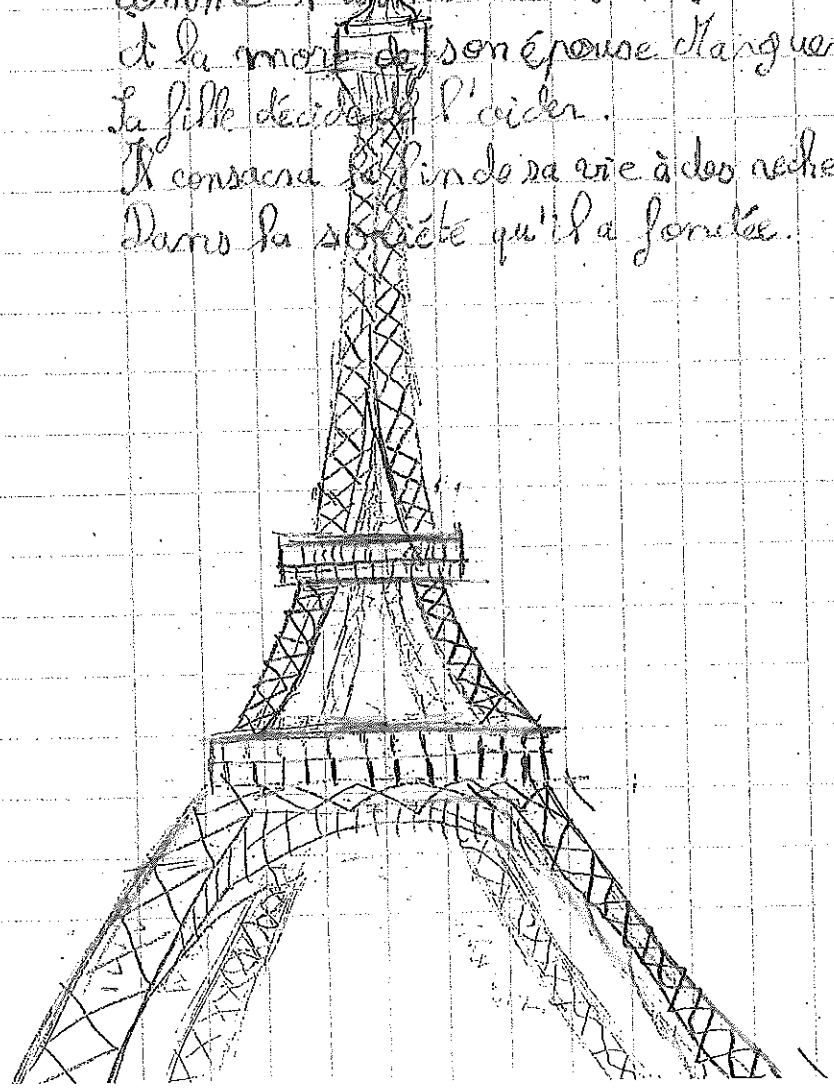 et la mort de son épouse
Sa fille décide de l'aider.
Il consacra sa fin de sa vie à des
Dans la société qu'il a fondée.